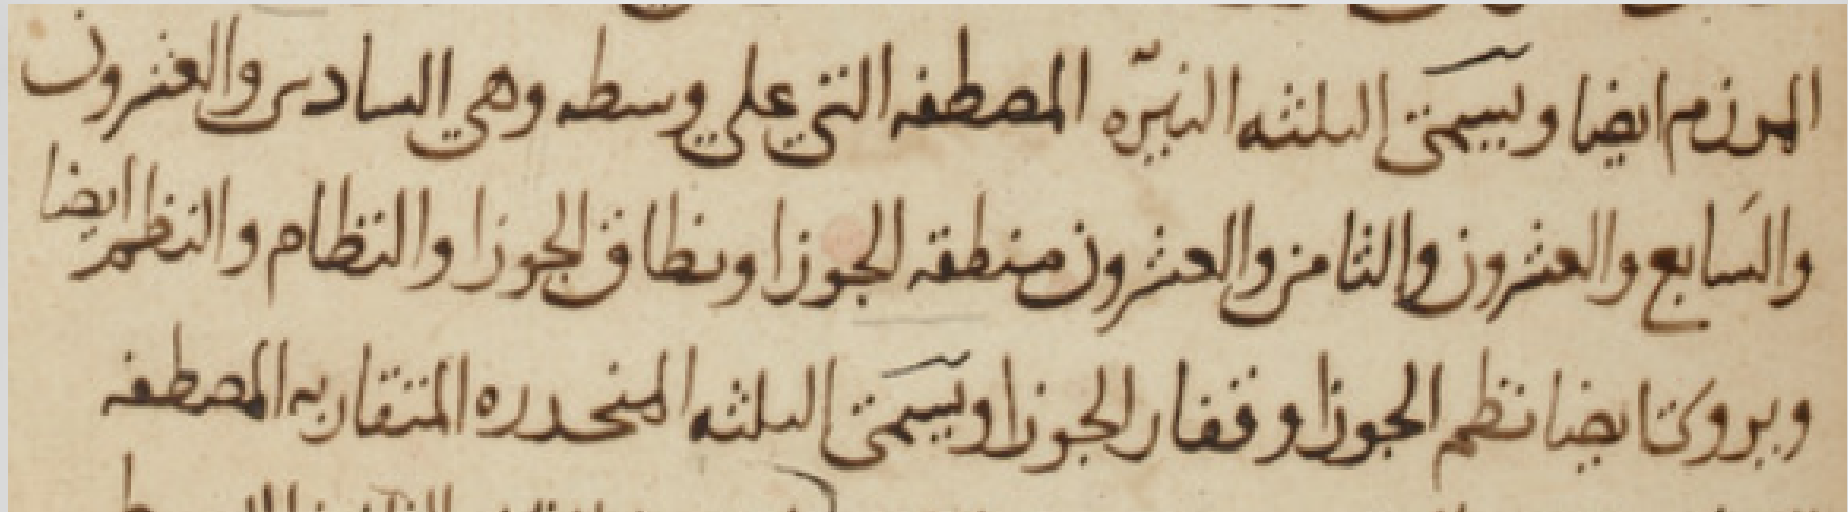 المرزم ايضا ويسمى الثلثه النيّره المصطفه التي على وسطه وهي السادس والعشرون
والسابع والعشرون والثامن والعشرون منطقه الجوزا ونطاق الجوزا والنظام والنظم ايضا
ويروى ايضا نظم الجوزا وفقار الجوزا ويسمى الثلثه المنحدره المتقاربه المصطفه